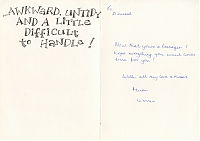 ...AWKWARD, UNTIDY
AND A LITTLE
DIFFICULT
to HANDLE!
To
Now that you're a teenager I
hope everything you want comes
true for you!
With all my love & kisses